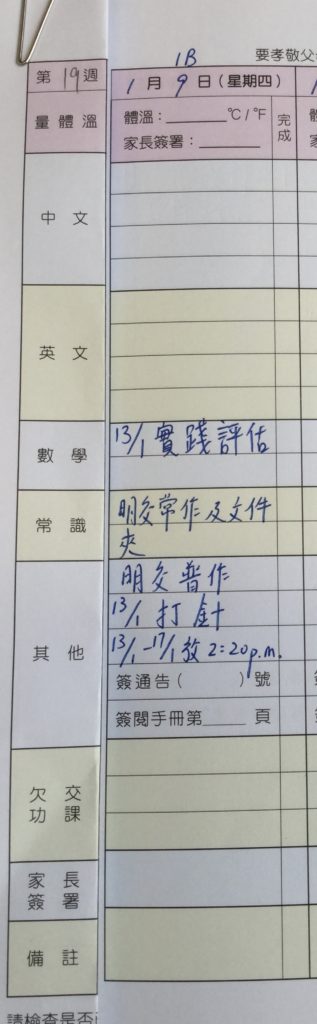 1B
要孝敬父
第19週
1月9日(星期四)
量體溫
體溫：______°C/°F
家長簽署：______
完成
中文
英文
數學
13/1 實踐評估
常識
明交常作及文件
夾
其他
明交普作
13/1 打針
13/1-17/1 放 2:20p.m.
簽通告( )號
簽閱手冊第____頁
欠交
功課
家長
簽署
備註
請檢查是否